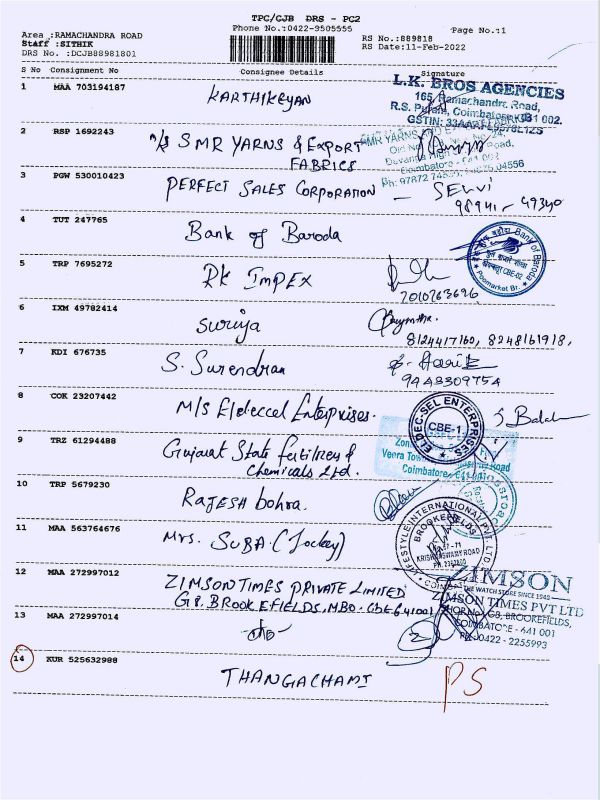 TPC/CJB DRS - PC2
Phone No.:0422-9505555
Page No.:1
Area :RAMACHANDRA ROAD
Staff :SITHIK
DRS No. :DCJB88981801
RS No.:889818
RS Date:11-Feb-2022
S No Consignment No Consignee Details Signature
1 MAA 703194187 KARTHIKEYAN
L.K. BROS AGENCIES
165, Ramachandra Road,
R.S. Puram, Coimbatore 641 002.
GSTIN:
2 RSP 1692243 M/S SMR YARNS & EXPORT
FABRICS
SMR YARNS AND
3 PGW 530010423 PERFECT SALES CORPORATION - SELVI
98941 - 49340
4 TUT 247765 Bank of Baroda
Bank of Baroda
Poomarket Br.
CBE-02
5 TRP 7695272 RK IMPEX
2010763696
6 IXM 49782414 Suriya
8124417160, 8248161918,
7 KDI 676735 S. Surendran
9443309754
8 COK 23207442 M/S Eldeccel Enterprises.
ELDEC-SEL ENTERPRISES
CBE-1
S. Balah
9 TRZ 61294488 Gujarat State Fertilizers &
Chemicals Ltd.
Coimbatore
10 TRP 5679230 Rajesh bohra.
11 MAA 563764676 Mrs. SUBA (Jockey)
LIFESTYLE INTERNATIONAL PVT LTD
BROOKEFIELDS
KRISHNASWAMY ROAD
12 MAA 272997012 ZIMSON TIMES PRIVATE LIMITED
G8, BROOKEFIELDS, MBO. CBE 641001
ZIMSON
THE WATCH STORE SINCE 1948
ZIMSON TIMES PVT LTD
G8, BROOKEFIELDS,
COIMBATORE - 641 001
PH:0422 - 2255993
13 MAA 272997014 -do-
14 KUR 525632988 THANGACHAMI PS